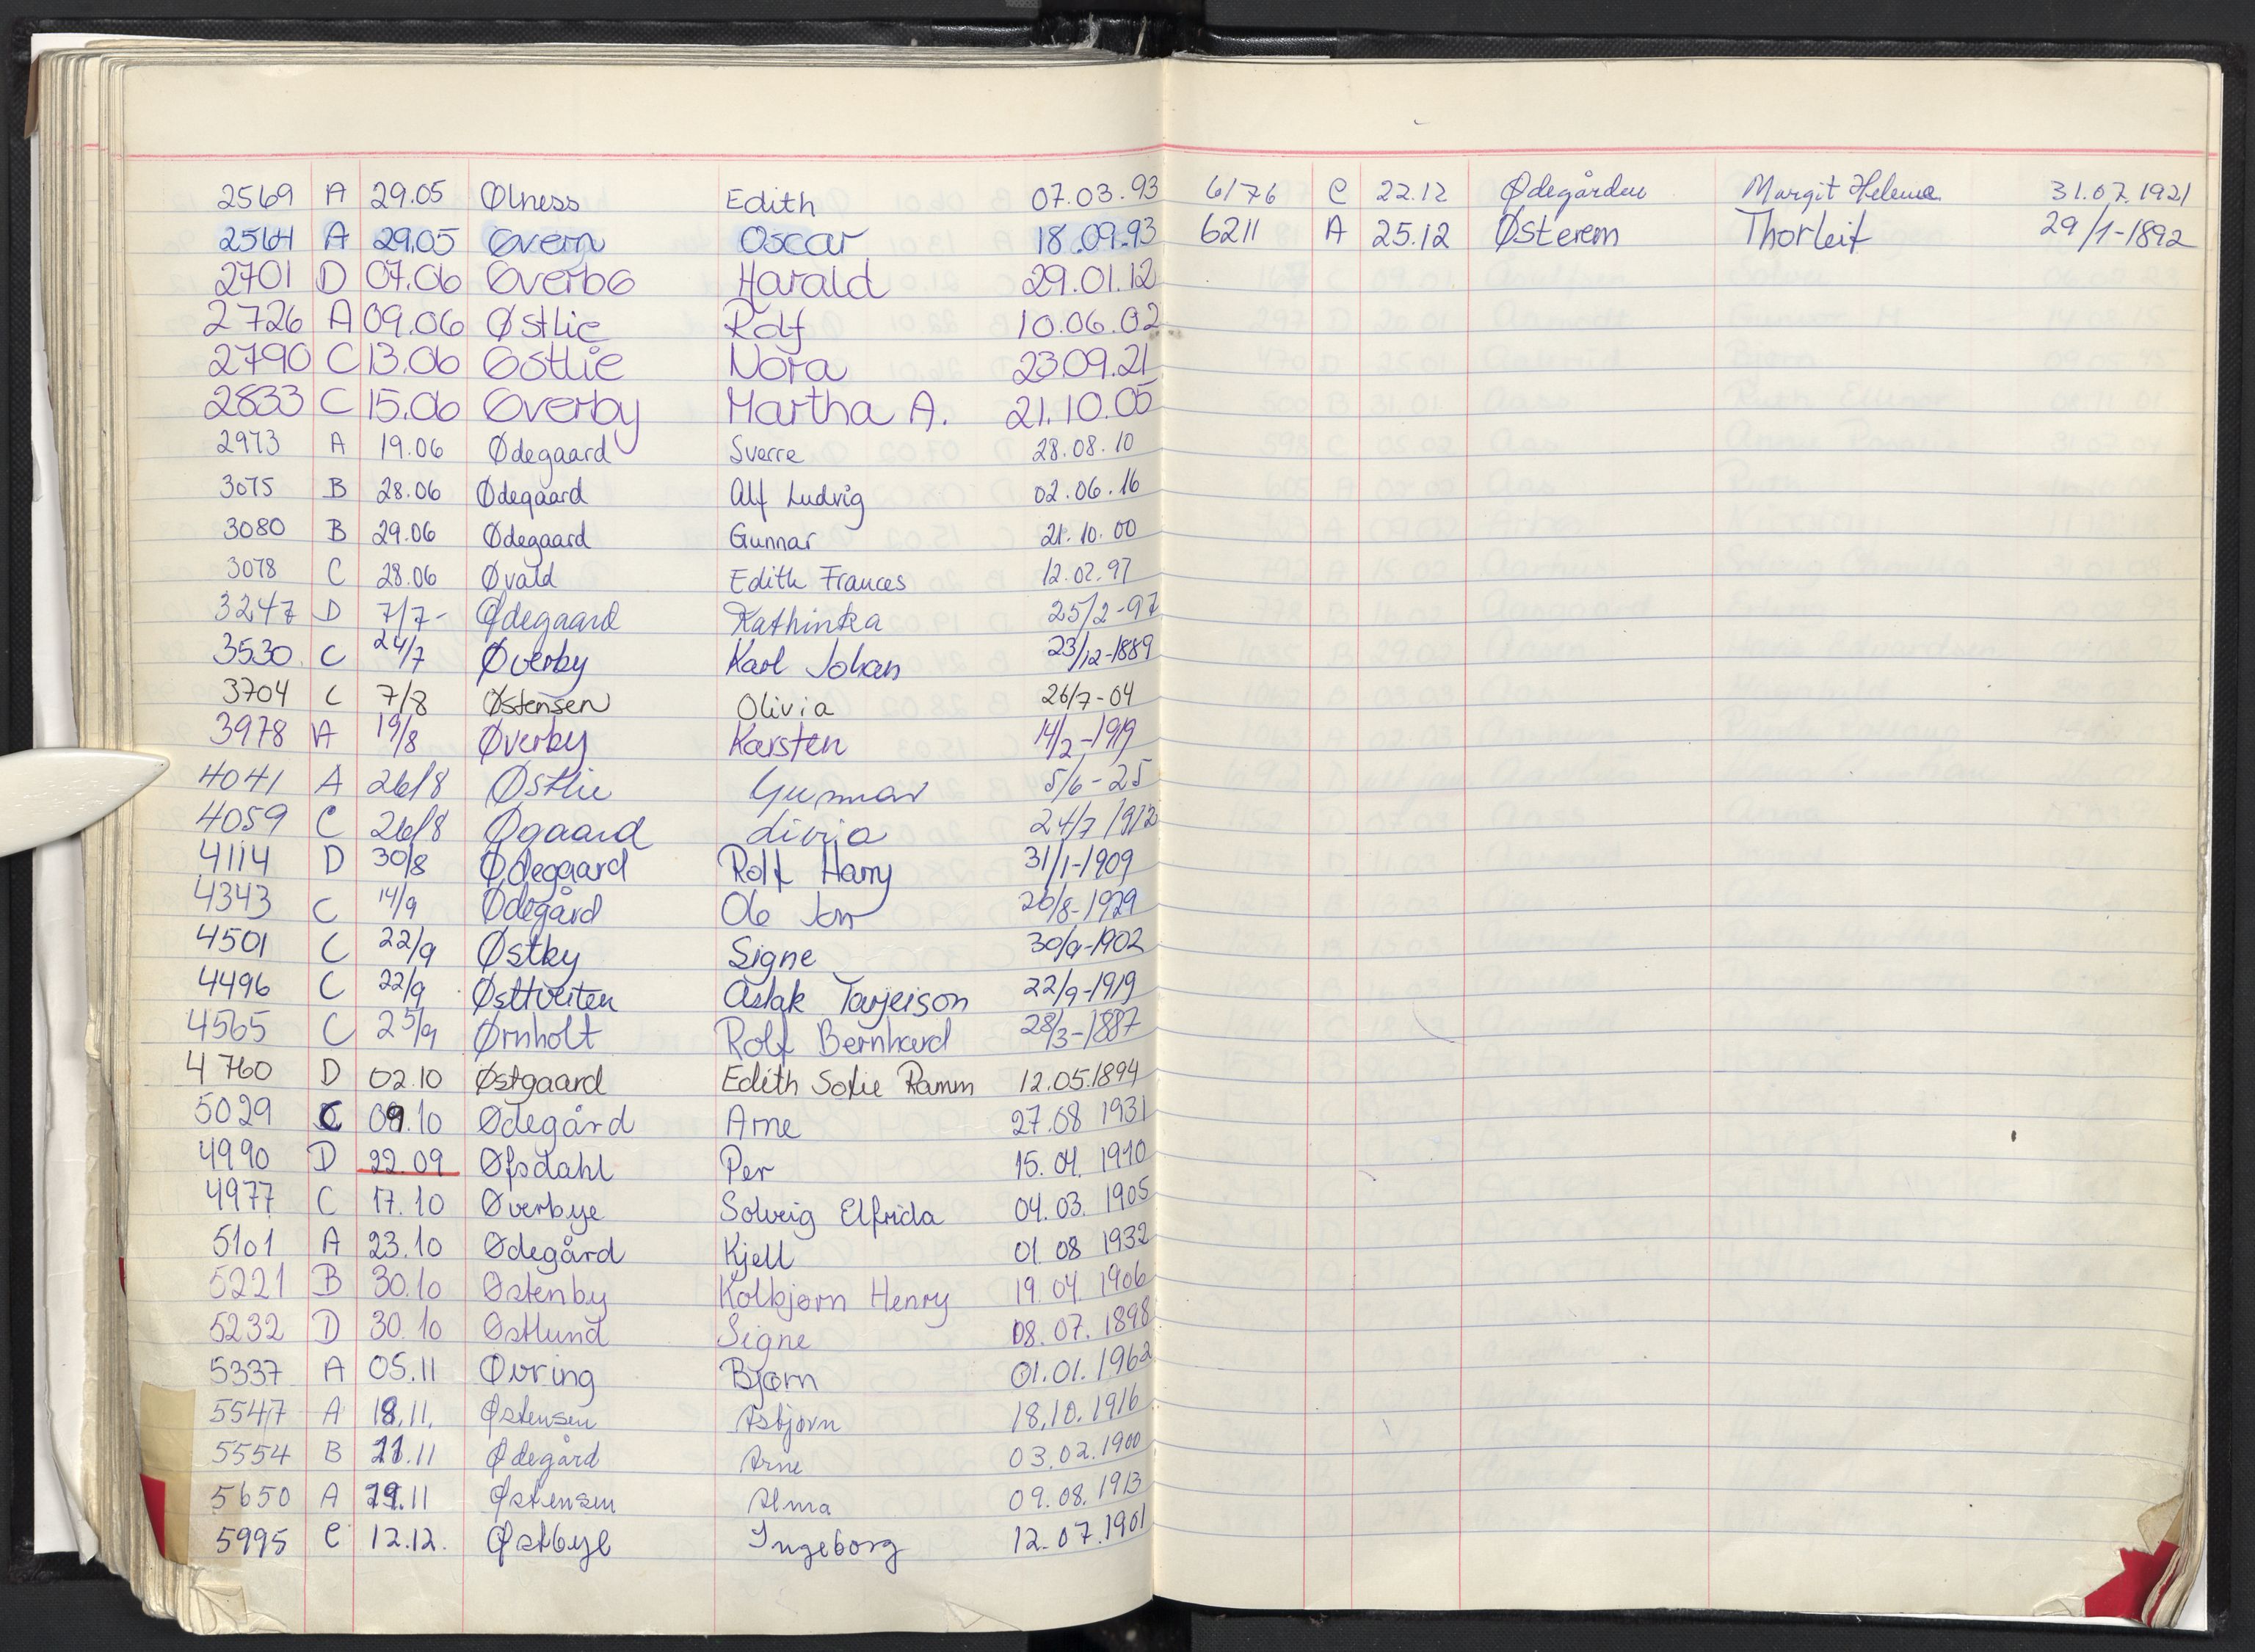 2569 A 29.05 Ølness Edith 07.03.93
2564 A 29.05 Øvern Oscar 18.09.93
2701 D 07.06 Øverbø Harald 29.01.12
2726 A 09.06 Østlie Rolf 10.06.02
2790 C 13.06 Østlie Nora 23.09.21
2833 C 15.06 Øverby Martha A. 21.10.05
2973 A 19.06 Ødegaard Sverre 28.08.10
3075 B 28.06 Ødegaard Alf Ludvig 02.06.16
3080 B 29.06 Ødegaard Gunnar 21.10.00
3078 C 28.06 Øvald Edith Frances 12.02.97
3247 D 7/7- Ødegaard Kathinka 25/2-97
3530 C 24/7 Øverby Karl Johan 23/12-1889
3704 C 7/8 Østensen Olivia 26/7-04
3978 A 19/8 Øverby Karsten 14/2-1919
4041 A 26/8 Østlie Gunnar 5/6-25
4059 C 26/8 Øgaard Livia 24/7 1912
4114 D 30/8 Ødegaard Rolf Harry 31/1-1909
4343 C 14/9 Ødegård Ole Jon 26/8-1929
4501 C 22/9 Østby Signe 30/9-1902
4496 C 22/9 Østtveiten Aslak Tarjeison 22/9-1919
4565 C 25/9 Ørnholt Rolf Bernhard 28/3-1887
4760 D 02.10 Østgaard Edith Sofie Ramm 12.05.1894
5029 C 09.10 Ødegård Arne 27.08 1931
4990 D 22.09 Øfsdahl Per 15.04. 1910
4977 C 17.10 Øverbye Solveig Elfrida 04.03. 1905
5101 A 23.10 Ødegård Kjell 01.08 1932
5221 B 30.10 Østenby Kolbjørn Henry 19.04. 1906
5232 D 30.10 Østlund Signe 08.07. 1898
5337 A 05.11 Øvring Bjørn 01.01. 1962
5547 A 18.11. Østensen Asbjørn 18.10.1916
5554 B 21.11 Ødegård Arne 03.02.1900
5650 A 29.11 Østensen Alma 09.08.1913
5995 C 12.12. Østbye Ingeborg 12.07.1901
6176 C 22.12 Ødegården Margit Helene 31.07.1921
6211 A 25.12 Østerem Thorleif 29/1-1892